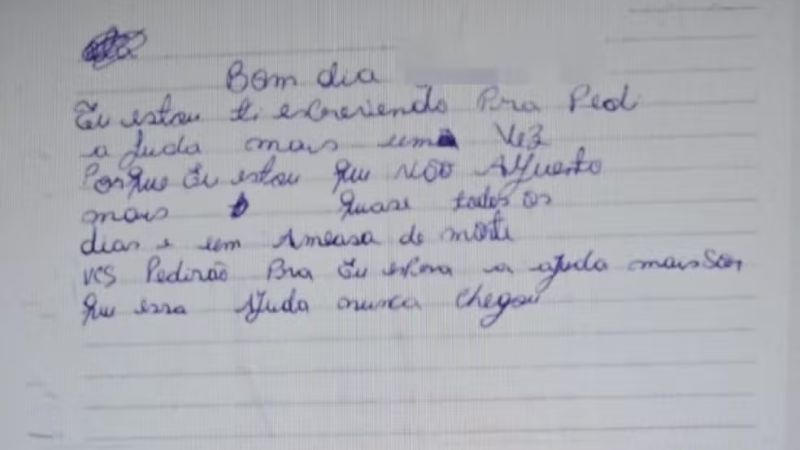 Bom dia
Eu estou ti escrevendo Pra Pedi
a Juda mais uma Vez
Porque Eu estou que NÃO Aguento
mais quase todos os
dias e um Ameasa de morte
vcs Pedirão Pra Eu espera a ajuda mais Só
que essa Ajuda nunca chegou